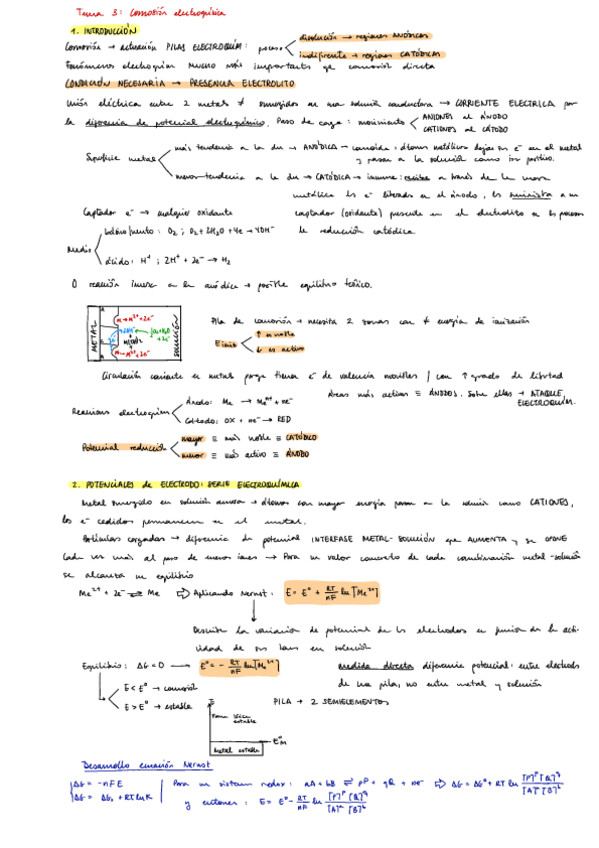 Tema 3: Corrosión electroquímica
1. INTRODUCCIÓN
Corrosión → actuación PILAS ELECTROQUÍM: proceso
disolución → regiones ANÓDICAS
indiferente → regiones CATÓDICAS
Fenómenos electroquím mucho más importants qe corrosión directa
CONDICIÓN NECESARIA → PRESENCIA ELECTROLITO
Unión eléctrica entre 2 metales ≠ sumergidos en una soluión conductora → CORRIENTE ELÉCTRICA por
la diferencia de potencial electroquímico. Paso de carga: movimiento
ANIONES al ÁNODO
CATIONES al CÁTODO
Superficie metal
más tendencia a la dn → ANÓDICA → corroída: átomos metálicos dejan sus e⁻ en el metal
y pasan a la solución como ion positivo.
menor tendencia a la dn → CATÓDICA → inmune: recibe a través de la masa
metálica los e⁻ liberados en el ánodo, los suministra a un
Captador e⁻ → cualquier oxidante
captador (oxidante) presente en el electrolito en los procesos
de reducción catódica.
Medio
básico/neutro: O₂; O₂ + 2H₂O + 4e → 4OH⁻
ácido: H⁺; 2H⁺ + 2e⁻ → H₂
O reacción inversa a la anódica → posible equilibrio teórico.
METAL
SOLUCIÓN
Pila de corrosión → necesita 2 zonas con ≠ energía de ionización
↑ es noble
↓ es activo
Circulación corriente en metals porqe tienen e⁻ de valencia movibles / con ↑ grado de libertad
Áreas más activas ≡ ÁNODOS. Sobre ellas → ATAQUE
ELECTROQUÍM.
Reacciones electroquím
Ánodo: Me → Meⁿ⁺ + ne⁻
Cátodo: OX + ne⁻ → RED
Potencial reducción
mayor ≡ más noble ≡ CATÓDICO
menor ≡ más activo ≡ ÁNODO
2. POTENCIALES de ELECTRODO: SERIE ELECTROQUÍMICA
Metal sumergido en solución acuosa → átomos con mayor energía pasan a la soluión como CATIONES,
los e⁻ cedidos permanecen en el metal.
Partículas cargadas → diferencia de potencial INTERFASE METAL-SOLUCIÓN qe AUMENTA y se OPONE
cada vez más al paso de nuevos iones → Para un valor concreto de cada combinación metal-solución
se alcanza un equilibrio
Me²⁺ + 2e⁻ ⇌ Me ⇨ Aplicando Nernst: E = E° + RT/nF ln [Me²⁺]
Describe la variación de potencial de los electrodos en función de la acti-
vidad de sus iones en solución
Equilibrio: ΔG = 0 → E° = - RT/nF ln [Me²⁺]
medida directa diferencia potencial: entre electrodos
de una pila, no entre metal y solución
E < E° → corrosión
E > E° → estable
PILA → 2 SEMIELEMENTOS
E
Forma iónica
estable
E°M
Metal estable
Desarrollo ecuación Nernst
ΔG = -nFE
ΔG = ΔG₀ + RT ln K
Para un sistema redox: aA + bB ⇌ pP + qQ + ne⁻ ⇨ ΔG = ΔG° + RT ln [P]ᵖ [Q]ᵠ / [A]ᵃ [B]ᵇ
y entonces: E = E° - RT/nF ln [P]ᵖ [Q]ᵠ / [A]ᵃ [B]ᵇ